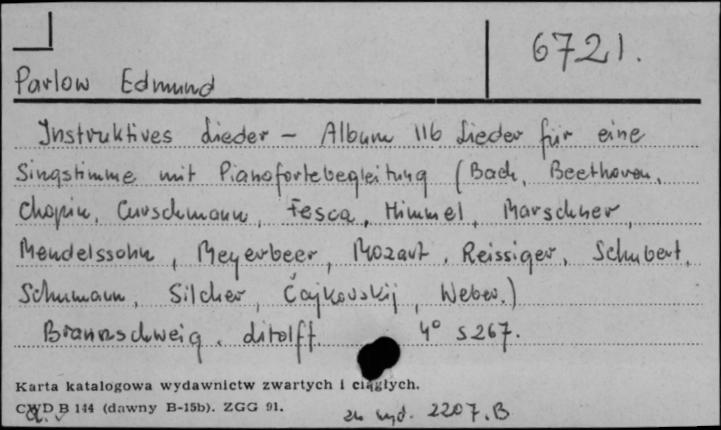 6721.
Parlow Edmund
Instruktives Lieder - Album 116 Lieder für eine
Singstimme mit Pianofortebegleitung (Bach, Beethoven,
Chopin, Curschmann, Fesca, Himmel, Marschner,
Mendelssohn, Meyerbeer, Mozart, Reissiger, Schubert,
Schumann, Silcher, Čajkovskij, Weber.)
Braunschweig. Litolff 4° s 267.
Karta katalogowa wydawnictw zwartych i ciągłych.
CWD B 144 (dawny B-15b). ZGG 91.
2207.B